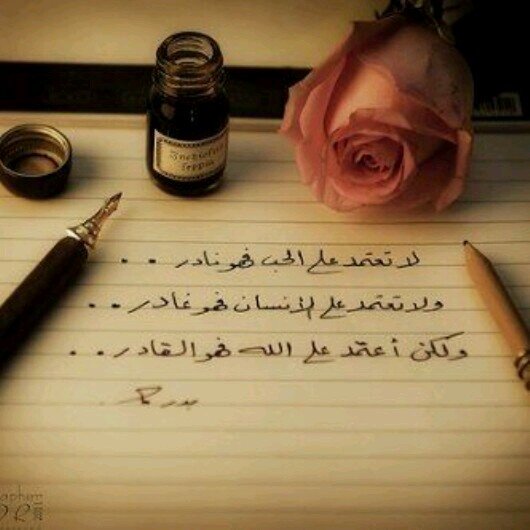 لا تعتمد على الحب فهو نادر . .
ولا تعتمد على الأنسان فهو غادر . .
ولكن أعتمد على الله فهو القادر . .